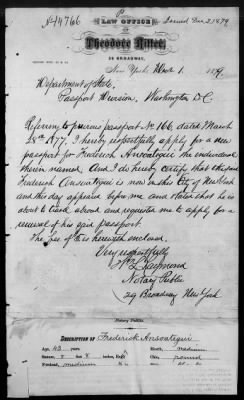 No 14766
Issued Dec 2 1879
LAW OFFICE
OF
Theodore Ritter,
29 BROADWAY,
New York, Dec. 1. 1879.
Department of State,
Passport Division, Washington D.C.
Referring to previous passport No 166, dated March
28th 1877, I hereby respectfully apply for a new
passport for Frederick Ansoategui the
therein named. And I do hereby certify that the said
Frederick Ansoategui is now in this City of New York
and this day appeared before me and stated that he is
about to travel abroad and requested me to apply for a
renewal of his said passport.
The fee of $ is herewith enclosed.
Very respectfully
Raymond
Notary Public
29 Broadway New York
Notary Public.
DESCRIPTION OF Frederick Ansoategui
Age, 43 years. medium
Stature, 5 8 inches, Eng. Chin, round
Forehead, medium